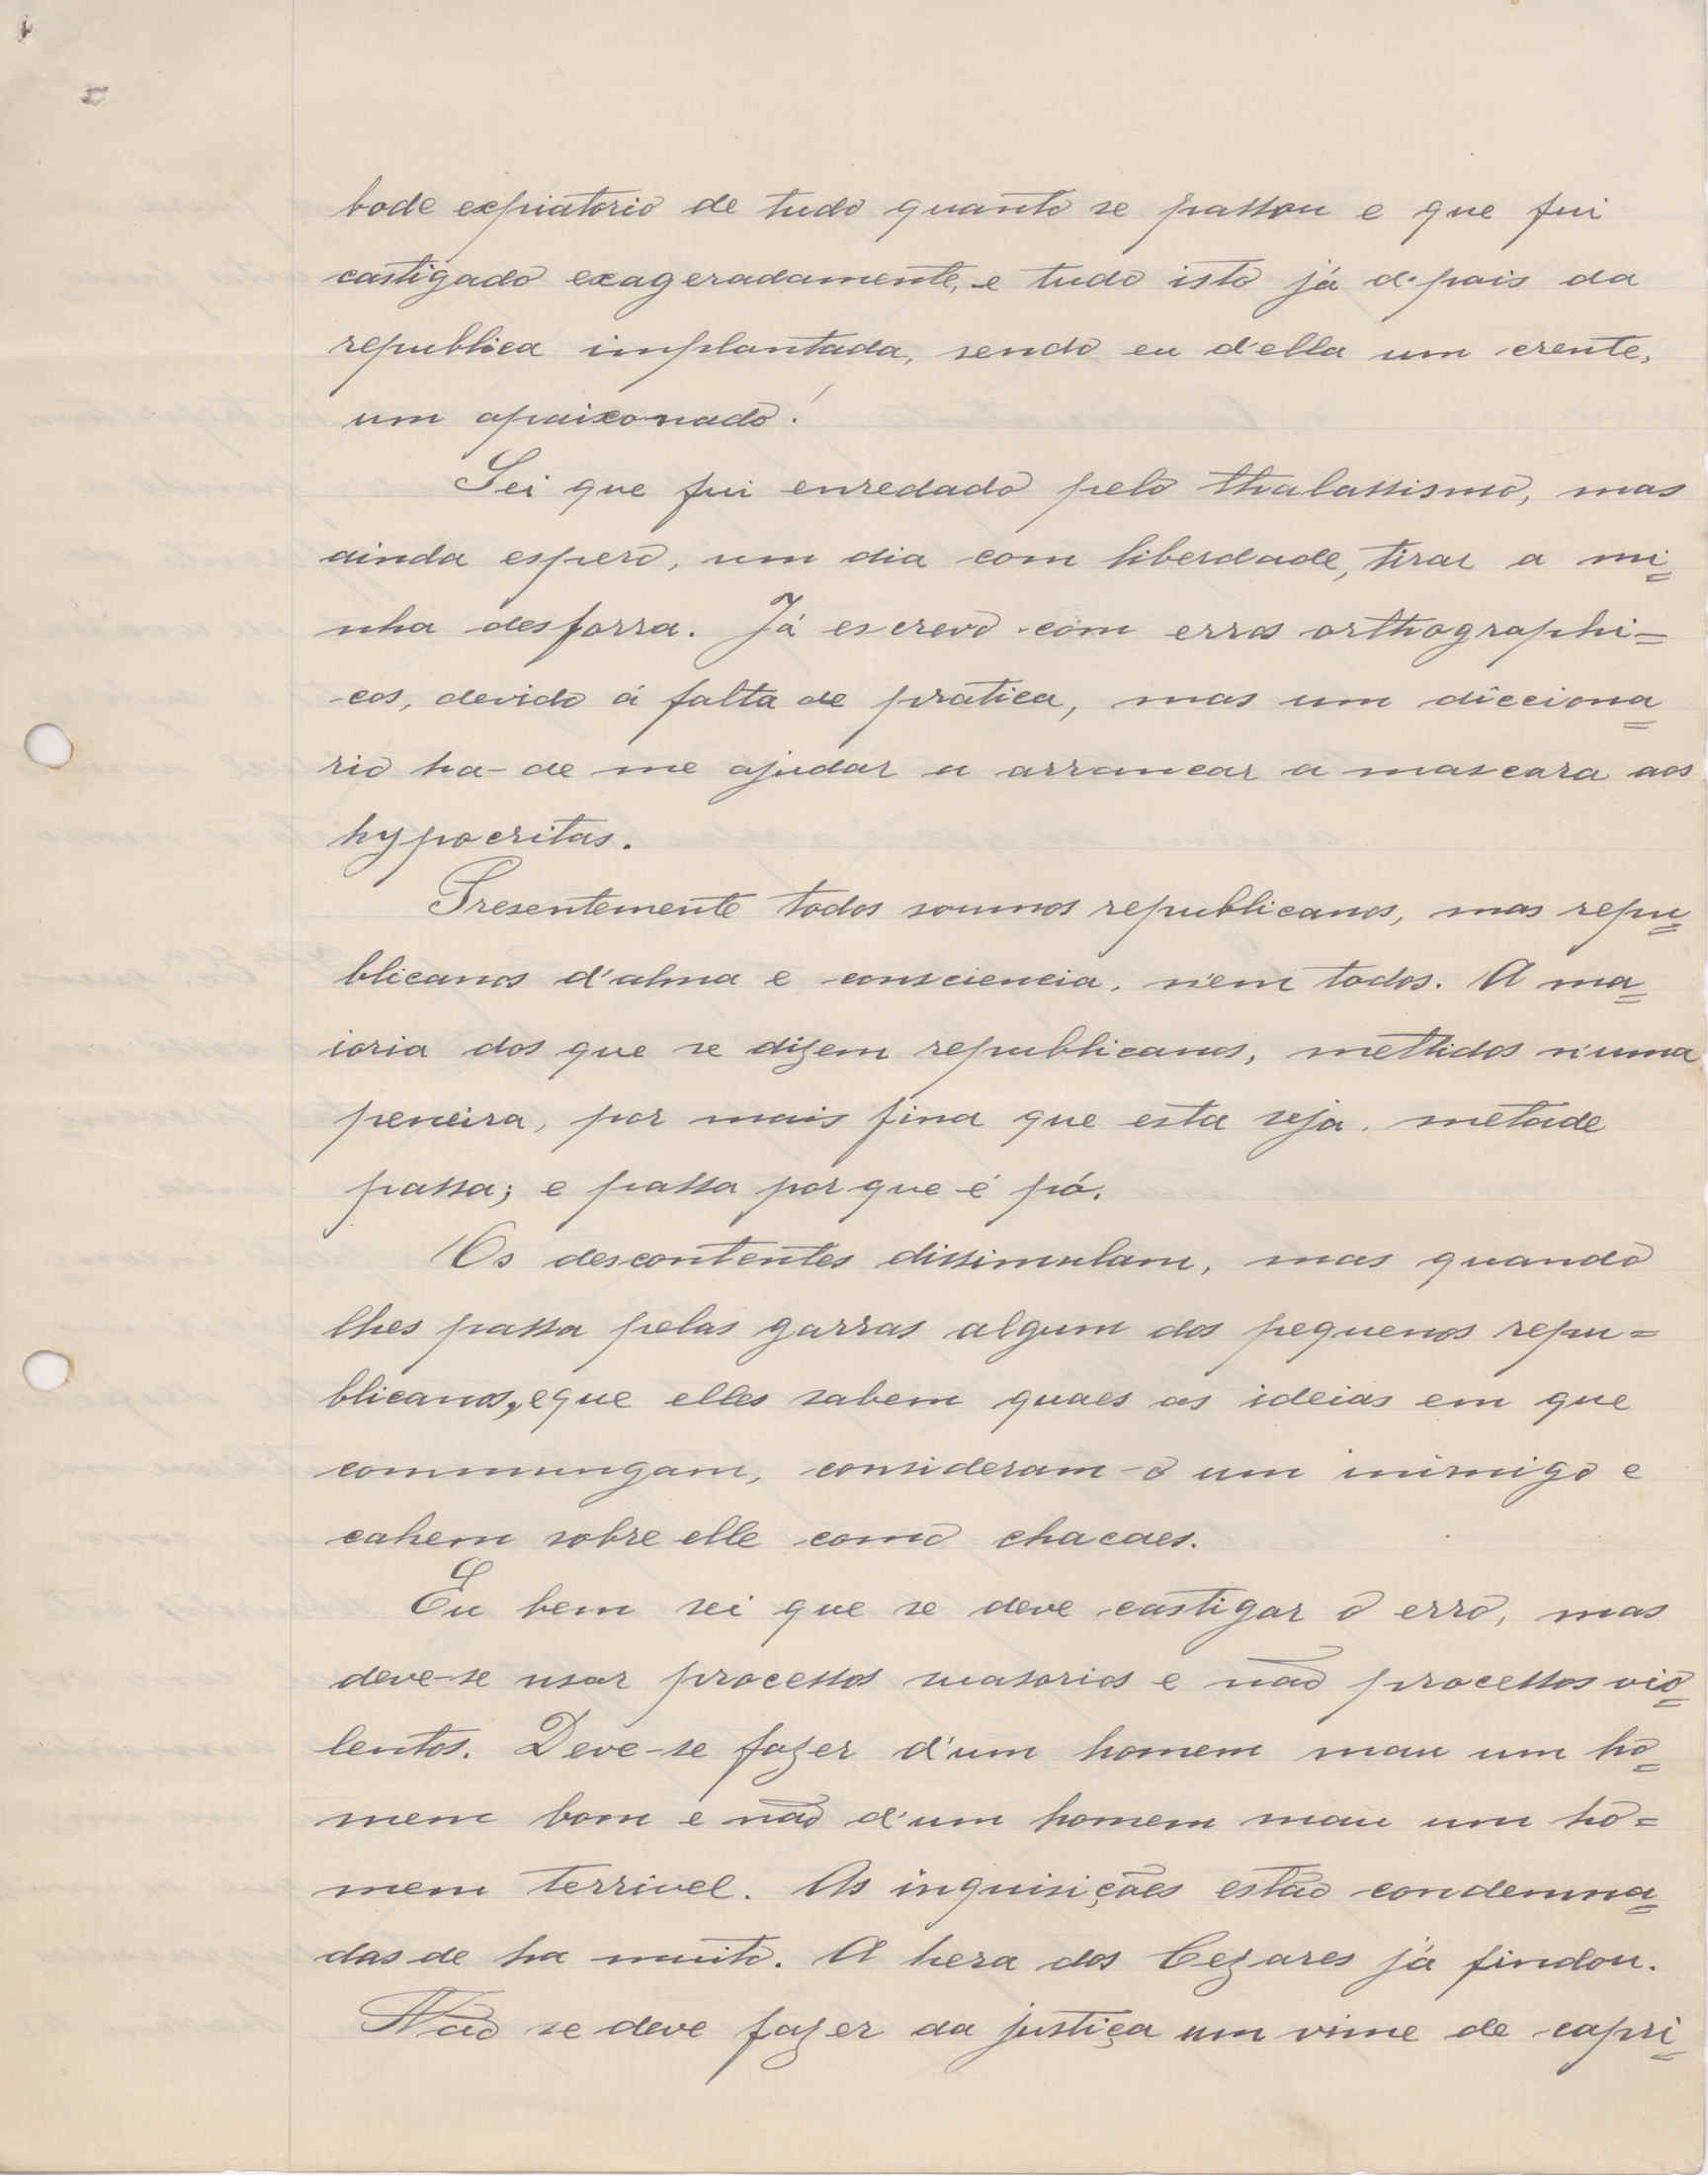 bode expiatorio de tudo quanto se passou e que fui
castigado exageradamente, e tudo isto já depois da
republica implantada, sendo eu d'ella um crente,
um apaixonado!
Sei que fui enredado pelo thalassismo, mas
ainda espero, um dia com liberdade, tirar a mi=
nha desforra. Já escrevo com erros orthographi=
cos, devido á falta de pratica, mas um dicciona=
rio ha-de me ajudar a arrancar a mascara aos
hypocritas.
Presentemente todos soumos republicanos, mas repu=
blicanos d'alma e consciencia, nem todos. A ma=
ioria dos que se dizem republicanos, mettidos n'uma
peneira, por mais fina que esta seja, metade
passa; e passa porque é pó.
Os descontentes dissimulam, mas quando
lhes passa pelas garras algum dos pequenos repu=
blicanos, e que elles sabem quaes as ideias em que
commungam, consideram-o um inimigo e
cahem sobre elle como chacaes.
Eu bem sei que se deve castigar o erro, mas
deve-se usar processos suasorios e não processos vio=
lentos. Deve-se fazer d'um homem mau um ho=
mem bom e não d'um homem mau um ho=
mem terrivel. As inquisições estão condemna=
das de ha muito. A hera dos Cezares já findou.
Não se deve fazer da justiça um vime de capri=